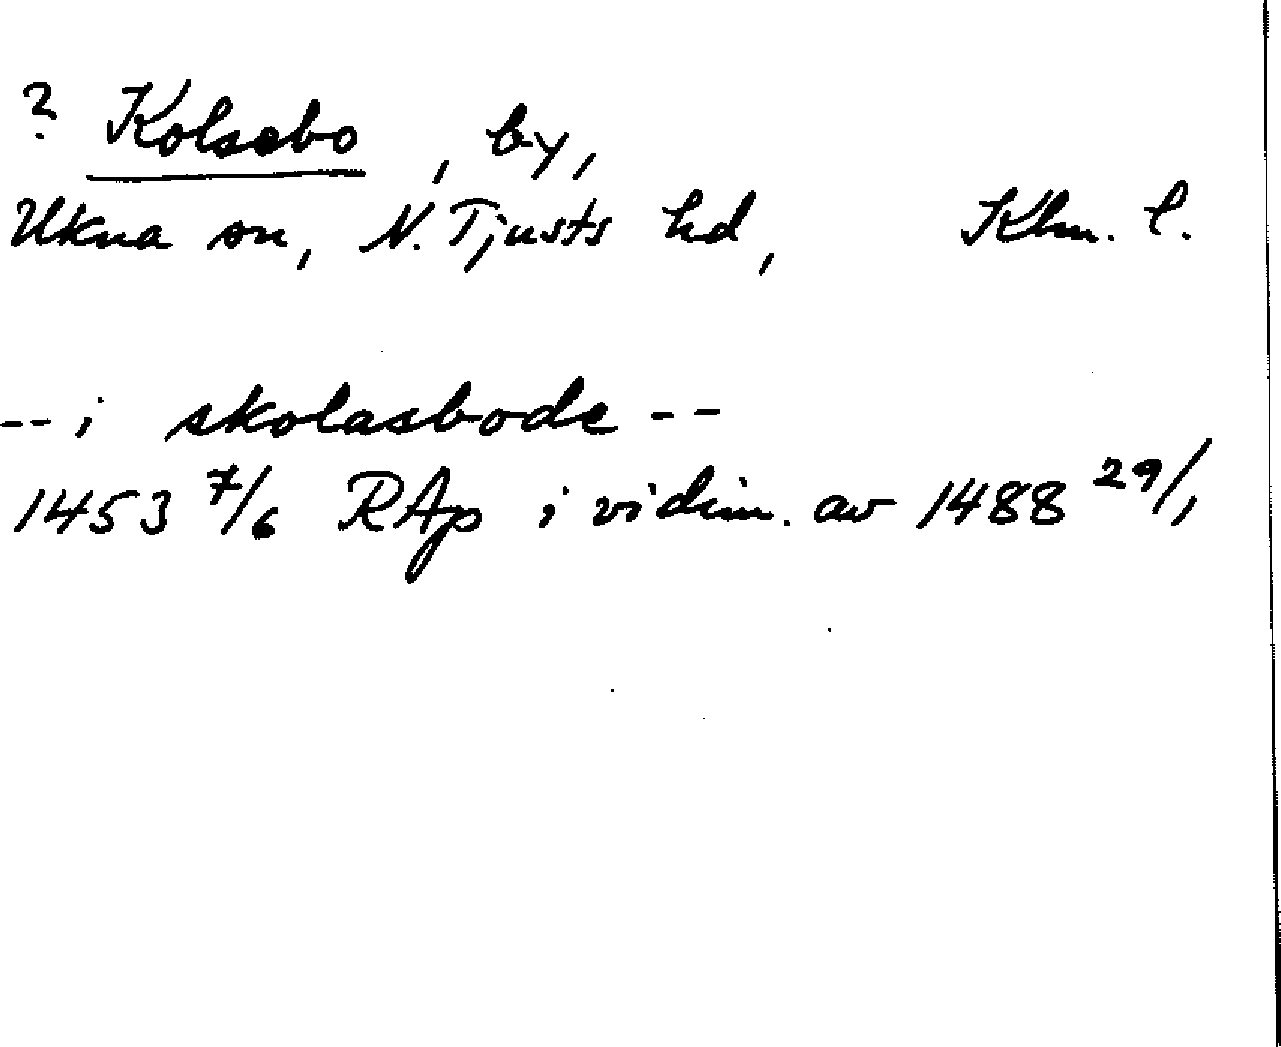 ? Kolsebo, by,
Ukna sn, N. Tjusts hd, Klm. l.
-- i skolasbode --
1453 7/6 RAp i vidim. av 1488 29/1